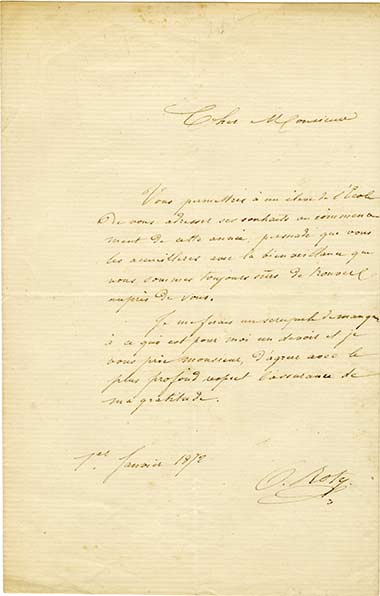 Cher Monsieur
Vous permettrez à un élève de l'École
de vous adresser ses souhaits au commence
ment de cette année, persuadé que vous
les accueillerez avec la bienveillance que
nous sommes toujours sûrs de trouver
auprès de vous.
Je me ferais un scrupule de manquer
à ce qui est pour moi un devoir et je
vous prie monsieur, d'agréer avec le
plus profond respect l'assurance de
ma gratitude.
1er Janvier 1872
O. Roty